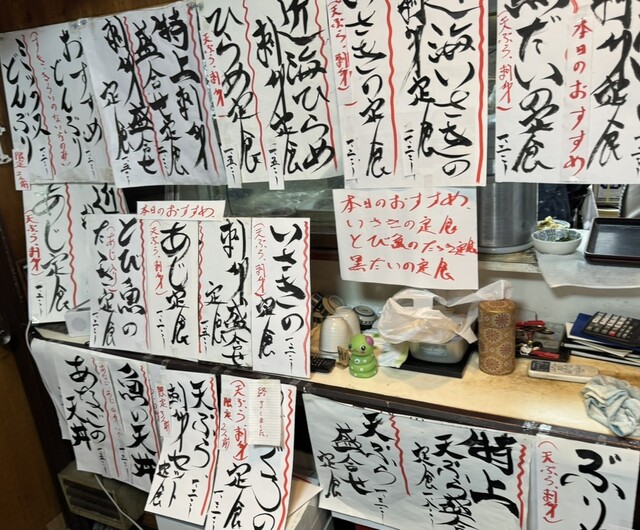 おすすめ
どんぶり
一、二〇〇
どんぶり
限定
特上刺身
盛合せ定食
刺身盛合せ
一、五〇〇
近海ひらめ
刺身定食
ひらめ定食
(天ぷら、刺身)
一、五〇〇
近海いさきの
刺身定食
いさきの定食
(天ぷら、刺身)
刺身定食
本日のおすすめ
黒だいの定食
(天ぷら、刺身)
本日のおすすめ
いさきの定食
とび魚のたたき定食
黒だいの定食
本日のおすすめ
いさきの
定食
(天ぷら、刺身)
刺身盛合せ
定食
あじ定食
(天ぷら、刺身)
とび魚の
たたき定食
あじ定食
(天ぷら、刺身)
魚の天丼
あなごの
天丼
天ぷら
刺身セット
定食
(天ぷらお刺身)
終了しました。
特上
天ぷら盛合せ
定食
天ぷら
盛合せ
定食
ぶり
(天ぷら、刺身)